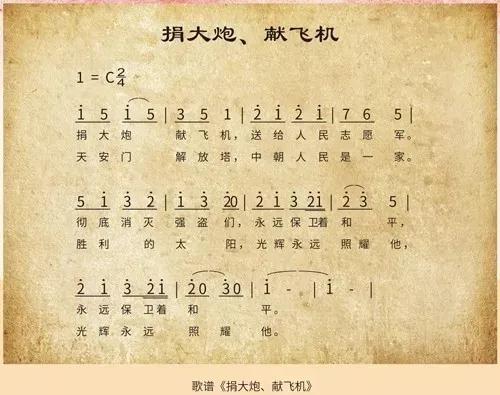 捐大炮、献飞机
1 = C 2/4
i 5 i 5 | 3 5 1 | 2 i 2 i | 7 6 5 |
捐 大 炮 献 飞 机，送 给 人 民 志 愿 军。
天 安 门 解 放 塔，中 朝 人 民 是 一 家。
5 i 3 2 | i 3 20 | 2 i 3 2i | 2 3 5 |
彻 底 消 灭 强 盗 们，永 远 保 卫着 和 平，
胜 利 的 太 阳，光 辉 永 远 照 耀 他，
2 i 3 2i | 20 30 | i - | i - |
永 远 保 卫着 和 平。
光 辉 永 远 照 耀 他。
歌谱《捐大炮、献飞机》